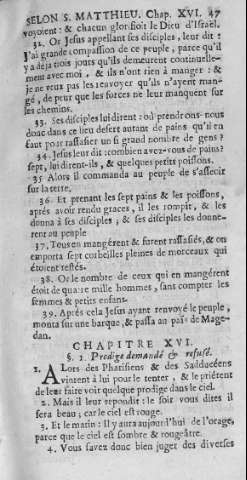 SELON S. MATTHIEU. Chap. XVI. 47
voyoient : & chacun glorifioit le Dieu d'Israël.
32. Or Jesus appellant ses disciples, leur dit :
J'ai grande compassion de ce peuple, parce qu'il
y a déja trois jours qu'ils demeurent continuelle-
ment avec moi, & ils n'ont rien à manger : &
je ne veux pas les renvoyer qu'ils n'ayent man-
gé, de peur que les forces ne leur manquent sur
les chemins.
33. Ses disciples lui dirent : où prendrons-nous
donc dans ce lieu desert autant de pains qu'il en
faut pour rassasier un si grand nombre de gens ?
34. Jesus leur dit : combien avez-vous de pains ?
sept, lui dirent-ils, & quelques petits poissons.
35 Alors il commanda au peuple de s'asseoir
sur la terre,
36. Et prenant les sept pains & les poissons,
après avoir rendu graces, il les rompit, & les
donna à ses disciples ; & ses disciples les donne-
rent au peuple
37. Tous en mangérent & furent rassasiés, & on
emporta sept corbeilles pleines de morceaux qui
étoient restés.
38. Or le nombre de ceux qui en mangérent
étoit de quatre mille hommes, sans compter les
femmes & petits enfans.
39. Après cela Jesus ayant renvoyé le peuple,
monta sur une barque, & passa au païs de Mage-
dan.
CHAPITRE XVI.
§. 1. Prodige demandé & refusé.
1. ALors des Pharisiens & des Sadducéens
vinrent à lui pour le tenter, & le priérent
de leur faire voir quelque prodige dans le ciel.
2. Mais il leur répondit : le soir vous dites il
sera beau ; car le ciel est rouge.
3. Et le matin : Il y aura aujourd'hui de l'orage,
parce que le ciel est sombre & rougeâtre.
4. Vous savez donc bien juger des diverses